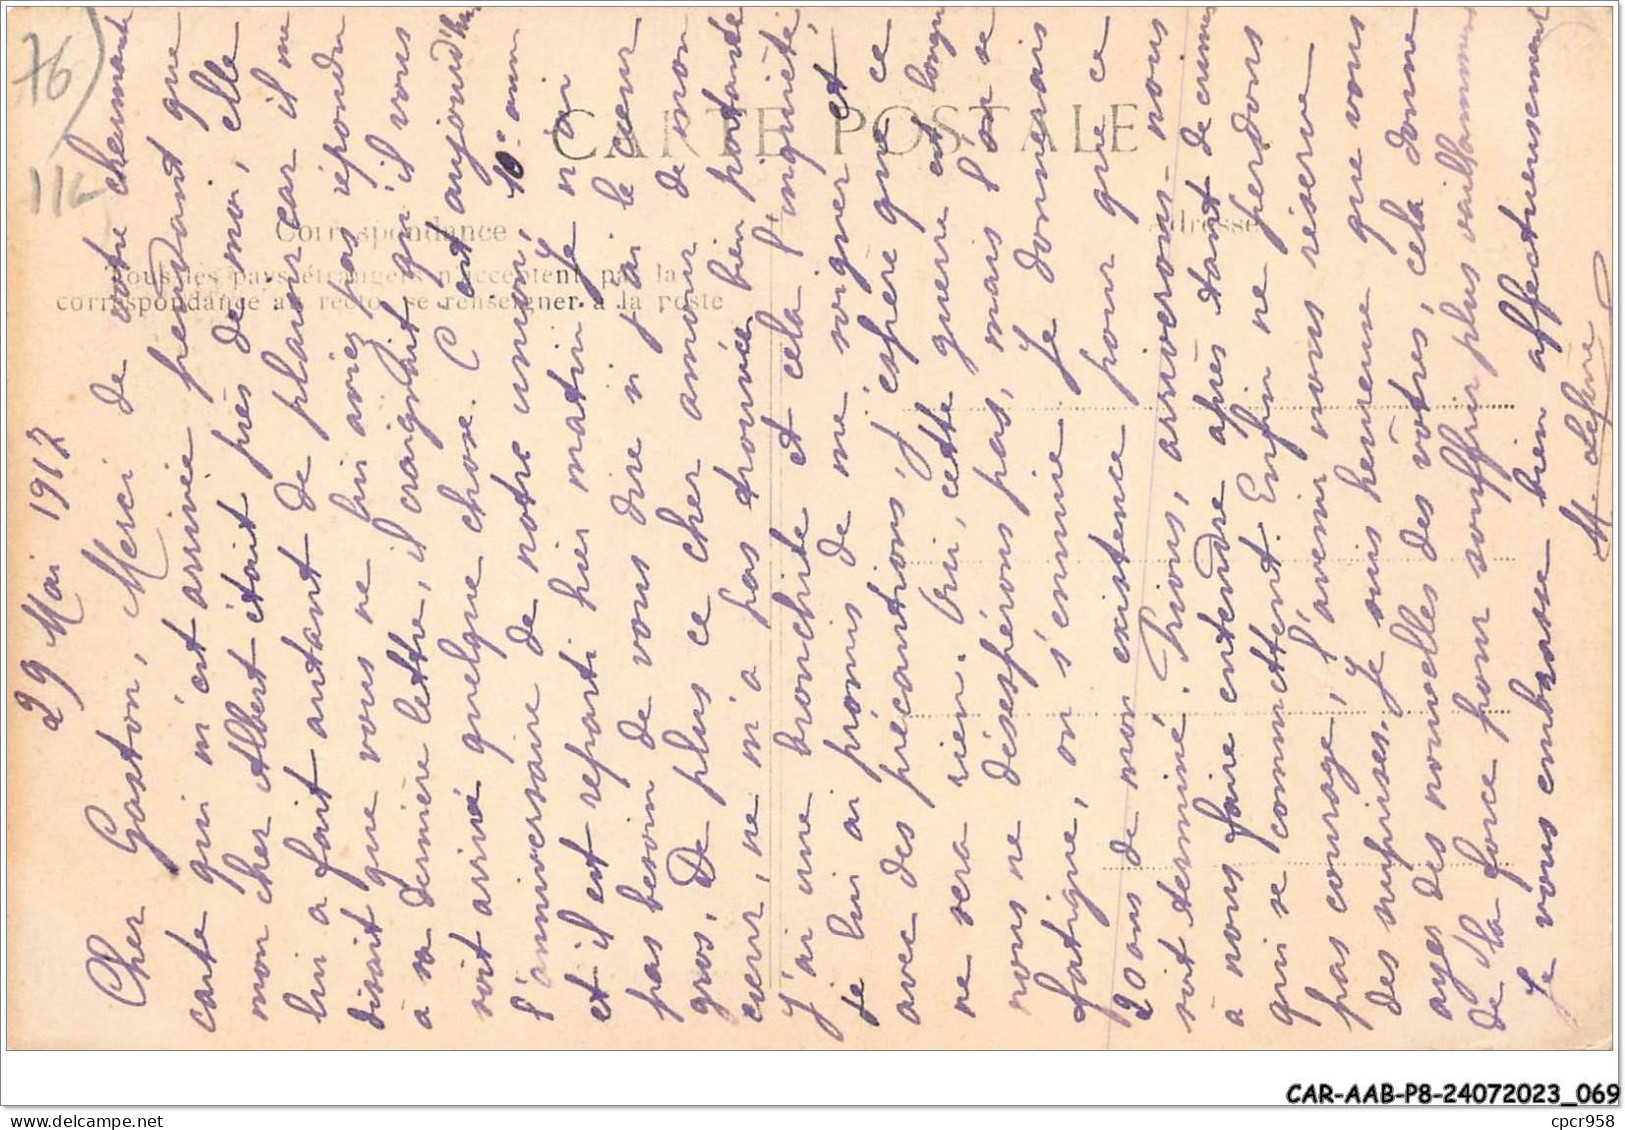 76
116
CARTE POSTALE
Correspondance
Adresse
Tous les pays étrangers n'acceptent pas la
correspondance au recto, se renseigner à la poste
29 Mai 1917
Cher Gaston, Merci de votre charmante
carte qui m'est arrivée pendant que
mon cher Albert était près de moi, elle
lui a fait autant de plaisir car il me
disait que vous ne lui aviez pas répondu
à sa dernière lettre, il craignait qu'il vous
soit arrivé quelque chose. C'est aujourd'hui
l'anniversaire de notre union, 10e ann
et il est reparti hier matin je n'ai
pas besoin de vous dire si j'ai le cœur
gros. De plus ce cher amour de mon
cœur, ne m'a pas trouvée bien portante
j'ai une bronchite et cela l'inquiète,
je lui ai promis de me soigner et
avec des précautions, j'espère que ce
ne sera rien. Oui, cette guerre est longue
nous ne désespérons pas, mais l'on se
fatigue, on s'ennuie. Je donnerais
20 ans de mon existence pour que ce
soit terminé. Prions, arriverons-nous
à nous faire entendre après tant de crimes
qui se commettent. Enfin ne perdons
pas courage, l'avenir nous réserve
des surprises. Je suis heureuse que vous
ayez des nouvelles des vôtres, cela donne
de la force pour souffrir plus vaillamment
Je vous embrasse bien affectueusement
CAR-AAB-P8-24072023_069
cpcr958